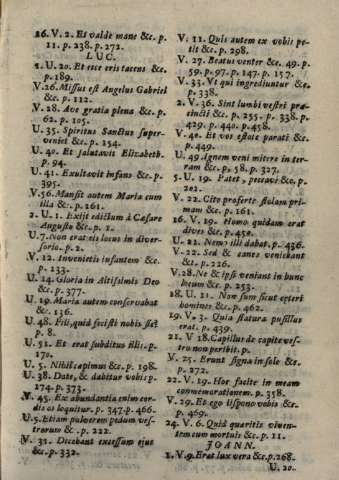 16. V. 2. Et valde mane &c. p.
11. p. 238. p. 272.
LUC.
1. U. 20. Et ecce eris tacens &c.
p. 189.
V. 26. Missus est Angelus Gabriel
&c. p. 112.
V. 28. Ave gratia plena &c. p.
62. p. 105.
U. 35. Spiritus Sanctus super-
veniet &c. p. 154.
U. 40. Et salutavit Elizabeth.
p. 94.
U. 41. Exultavit infans &c. p.
395.
V. 56. Mansit autem Maria cum
illa &c. p. 161.
2. U. 1. Exijt edictum à Cæsare
Augusto &c. p. 1.
U. 7. Non erat eis locus in diver-
sorio. p. 2.
V. 12. Invenietis infantem &c.
p. 133.
U. 14. Gloria in Altissimis Deo
&c. p. 377.
U. 19. Maria autem conservabat
&c. p. 136.
U. 48. Fili, quid fecisti nobis sic?
p. 8.
U. 51. Et erat subditus illis. p.
170.
U. 5. Nihil cepimus &c. p. 198.
U. 38. Date, & dabitur vobis p.
174. p. 373.
V. 45. Ex abundantia enim cor-
dis os loquitur. p. 347. p. 466.
U. 5. Etiam pulverem pedum ves-
trorum &c. p. 222.
V. 31. Dicebant excessum ejus
&c. p. 332.
V. 11. Quis autem ex vobis pe-
tit &c. p. 298.
V. 27. Beatus venter &c. 49. p.
59. p. 97. p. 147. p. 157.
V. 33. Vt qui ingrediuntur &c.
p. 338.
2. V. 36. Sint lumbi vestri præ-
cincti &c. p. 255. p. 338. p.
429. p. 440. p. 458.
V. 40. Et vos estote parati &c.
p. 449.
U. 49. Ignem veni mitere in ter-
ram &c. p. 58. p. 327.
5. U. 19. Pater, peccavi &c. p.
202.
V. 22. Cito proferte stolam pri-
mam &c. p. 161.
16. V. 19. Homo quidam erat
dives &c. p. 450.
U. 21. Nemo illi dabat. p. 436.
V. 22. Sed & canes veniebant
&c. p. 226.
V. 28. Ne & ipsi veniant in hunc
locum &c. p. 253.
18. U. 11. Non sum sicut cæteri
homines &c. p. 462.
19. V. 3. Quia statura pusillus
erat. p. 439.
21. V 18. Capillus de capite ves-
tro non peribit. p.
V. 25. Erunt signa in sole &c.
p. 272.
22. V. 19. Hoc facite in meam
commemorationem. p. 358.
V. 29. Et ego dispono vobis &c.
p. 469.
24. V. 6. Quid quæritis viven-
tem cum mortuis &c. p. 11.
JOANN.
1. V. 9. Erat lux vera &c. p. 268.
U. 20.